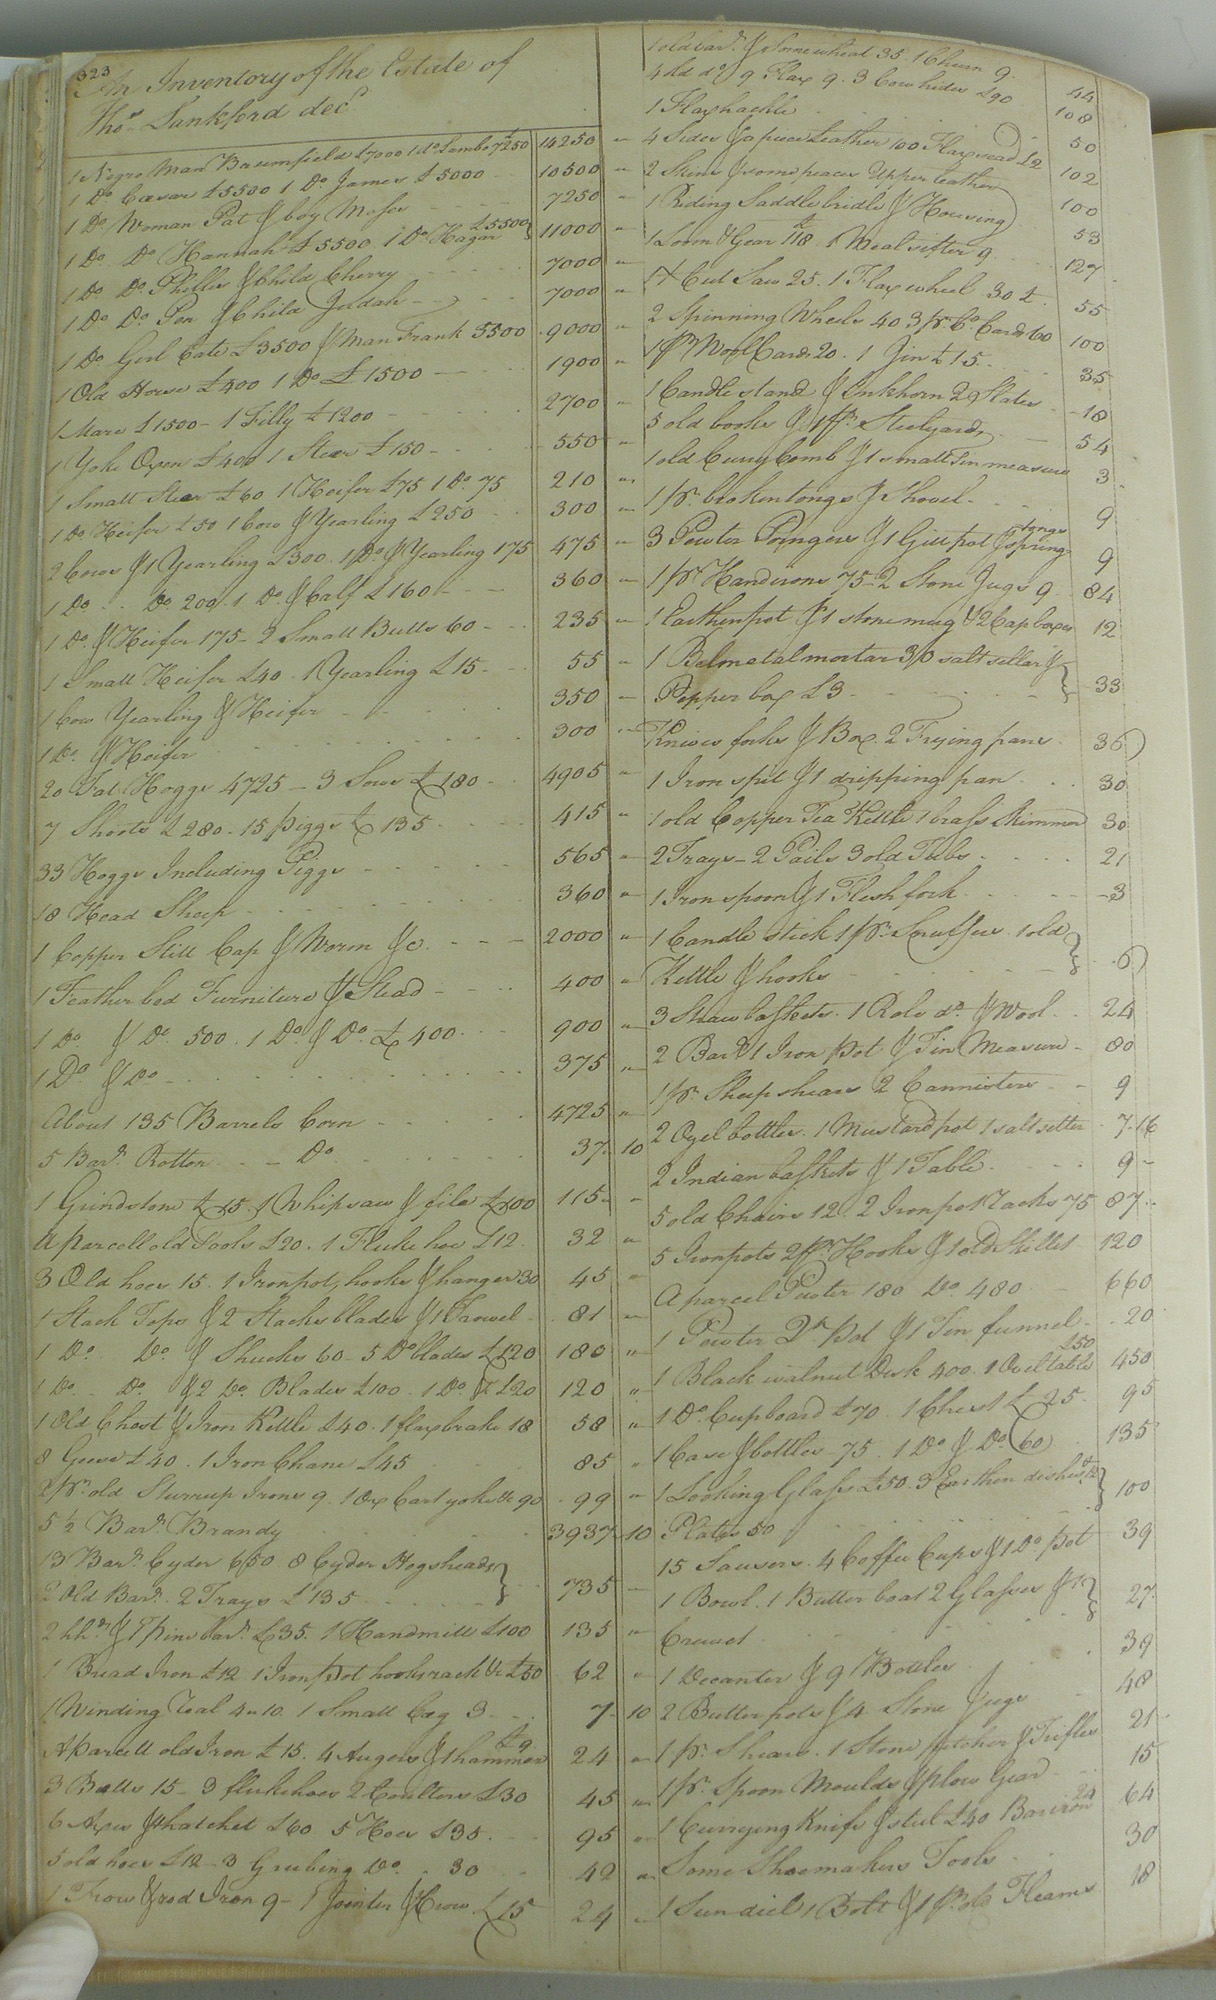 323
An Inventory of the Estate of
Thos. Lankford decd
1 Negro Man Brumfield £7000 1 do Lambo 7250 14250 "
1 Do Ceasar £5500 1 Do James £5000 10500 "
1 Do Woman Pat & boy Moses 7250 "
1 Do Do Hannah £5500. 1 Do Hagar £5500 11000 "
1 Do Do Phillis & Child Cherry 7000 "
1 Do Do Pen & Child Judah 7000 "
1 Do Girl Cate £3500 & Man Frank 5500 9000 "
1 Old Horse £400 1 Do £1500 1900 "
1 Mare £1500 - 1 Filly £1200 2700 "
1 Yoke Oxen £400 1 Stear £150 550 "
1 Small Stear £60 1 Heifer £75 1 Do 75 210 "
1 Do Heifer £50 1 Cow & Yearling £250 300 "
2 Cows & 1 Yearling £300. 1 Do & Yearling 175 475 "
1 Do Do 200. 1 Do & Calf £160 360 "
1 Do & Heifer 175 - 2 Small Bulls 60 235 "
1 Small Heifer £40. 1 Yearling £15 55 "
1 Cow Yearling & Heifer 350 "
1 Do & Heifer 300 "
20 Fat Hoggs 4725 - 3 Sows £180 4905 "
7 Shoots £280. 15 piggs £135 415 "
33 Hoggs Including Piggs 565 "
18 Head Sheep 360 "
1 Copper Still Cap & Worm &c. 2000 "
1 Feather bed Furniture & Stead 400 "
1 Do & Do 500. 1 Do & Do £400 900 "
1 Do & Do 375 "
About 135 Barrels Corn 4725 "
5 Barrs Rotton Do 37 10
1 Grindstone £15. 1 Whipsaw & file £100 115 "
A parcell old Tools £20. 1 Fluke hoe £12 32 "
3 Old hoes 15. 1 Iron pot, hooks & hanger 30 45 "
1 Stack Tops & 2 Stacks blades & 1 Trowel 81 "
1 Do Do & Shucks 60 - 5 Do blades £120 180 "
1 Do Do & 2 Do Blades £100. 1 Do £20 120 "
1 Old Chest & Iron Kettle £40. 1 flax brake 18 58 "
8 Geese £40. 1 Iron Chane £45 85 "
1 pr. old Sturrup Irons 9. 1 Ox Cart yoke &c 90 99 "
5 1/2 Barrs Brandy 3937 10
13 Barrs Cyder 650 8 Cyder Hogsheads
2 Old Barrs 2 Trays £135 735 "
2 hhds & 1 pine barr. £35. 1 Handmill £100 135 "
1 Bread Iron £12 1 Iron pot hooks rack &c £50 62 "
1 Winding 4 " 10. 1 Small Cag 3 7 10
A parcell old Iron £15. 4 Augers & 1 hammer £9 24 "
3 Bells 15 - 3 flukehoes 2 Coulters £30 45 "
6 Axes & hatchet £60 5 Hoes £35 95 "
5 old hoes £12 - 3 Grubing Do. 30 42 "
1 Frow & rod Iron 9 - 1 Jointer & Crow £15 24 "
1 old barr. & Some wheat 35. 1 Churn 9 44
4 old do 9 Flax 9. 3 Cow hides £90 108
1 Flaxhackle 50
4 Sides & a piece Leather 100 Flaxseed £2 102
2 Skins & some peaces Upper leather 100
1 Riding Saddle bridle & Housing 53
1 Loom & Gear £118. 1 Meal sifter 9 127
1 X Cut Saw 25. 1 Flax wheel 30 £ 55
2 Spinning Wheels 40 3 pr. Co. Cards 60 100
1 pr. Wool Cards 20. 1 Gin £15 35
1 Candle stand & Inkhorn 2 Slates 18
5 old books & 1 pr. Steelyards 54
1 old Curry Comb & 1 small tin measure 3
1 pr. broken tongs & Shovel 9
3 Pewter Poringers & 1 Gill pot & spring tongs 9
1 pr. Handirons 75 - 2 Stone Jugs 9 84
1 Earthen pot & 1 stone mug & 2 Cap boxes 12
1 Belmetal mortar 30 salt sellar &
Pepper box £3 33
Knives forks & Box. 2 Frying pans 36
1 Iron spit & 1 dripping pan 30
1 old Copper Tea Kettle 1 brass Skimmer 30
2 Trays - 2 Pails 3 old Tubs 21
1 Iron spoon & 1 Flesh fork 3
1 Candle stick 1 pr. Snuffers. 1 old
Kettle & hooks 6
3 Straw baskets. 1 Role do & Wool 24
2 Barrs 1 Iron Pot & Tin Measure 80
1 pr. Sheep shears 2 Cannisters 9
2 Oyel bottles. 1 Mustard pot 1 salt seller 7.16
2 Indian baskets & 1 Table 9
5 old Chairs 12. 2 Iron pot racks 75 87
5 Iron pots 2 pr. Hooks & 1 old Skillet 120
A parcel Pewter 180 Do 480 660
1 Pewter Qt. Pot & 1 Tin funnel 20
1 Black walnut Desk 400. 1 Oval table £50 450
1 Do Cupboard £70. 1 Chest £25 95
1 Case & bottles 75. 1 Do & Do 60 135
1 Looking Glass £50. 3 Earthen dishes &
Plates 50 100
15 Sausers. 4 Coffee Cups & 1 Do pot 39
1 Bowl. 1 Butter boat 2 Glasses & 1
Crewet 27
1 Decanter & 9 Bottles 39
2 Butter pots & 4 Stone Jugs 48
1 pr. Shears. 1 Stone pitcher & Trifles 21
1 pr. Spoon Moulds & plow Gear 15
1 Currying Knife & steel £40 Bar iron 24 64
Some Shoemakers Tools 30
1 Sun diel 1 Bolt & 1 pr. old Fleams 18